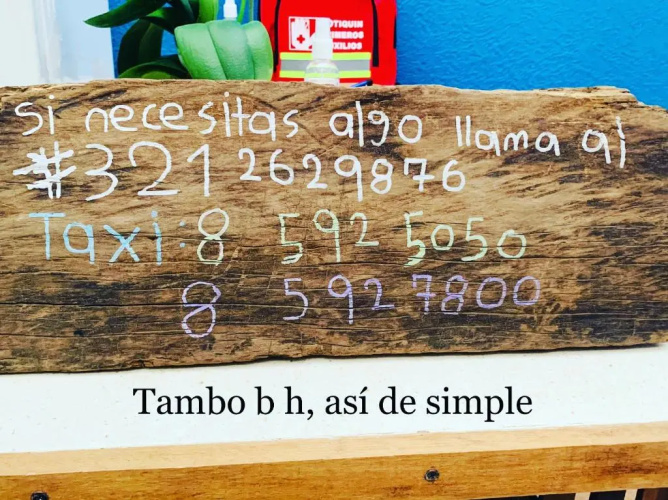 BOTIQUIN
PRIMEROS
AUXILIOS
si necesitas algo llama aj
#321 2629876
Taxi: 8 592 5050
8 592 7800
Tambo b h, así de simple